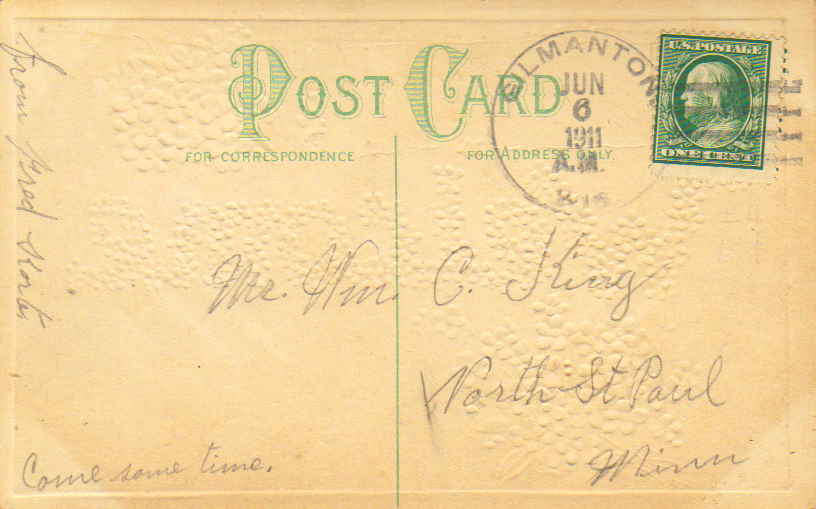 POST CARD
FOR CORRESPONDENCE
FOR ADDRESS ONLY
GILMANTON
JUN
6
1911
A.M.
U.S. POSTAGE
ONE CENT
From Fred
Mr. Wm. C. King
North St Paul
Minn
Come some time.